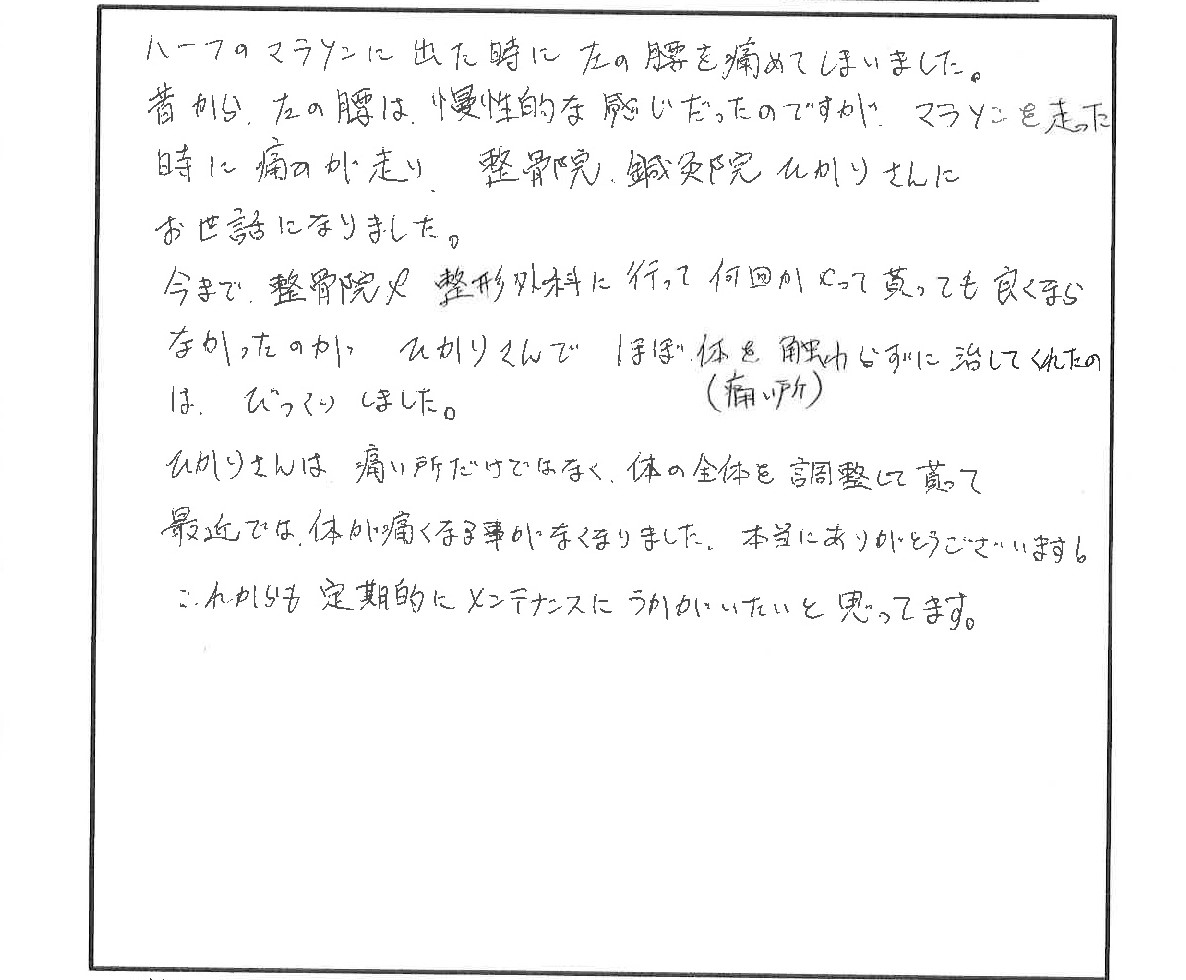 ハーフのマラソンに出た時に左の腰を痛めてしまいました。
昔から、左の腰は、慢性的な感じだったのですが、マラソンを走った
時に痛みが走り、整骨院、鍼灸院ひかりさんに
お世話になりました。
今まで、整骨院や整形外科に行って何回かやって貰っても良くなら
なかったのが、ひかりさんで ほぼ体を触わらずに治してくれたの
(痛い所)
は、びっくりしました。
ひかりさんは、痛い所だけではなく、体の全体を調整して貰って
最近では、体が痛くなる事がなくなりました。本当にありがとうございます。
これからも定期的にメンテナンスにうかがいたいと思ってます。